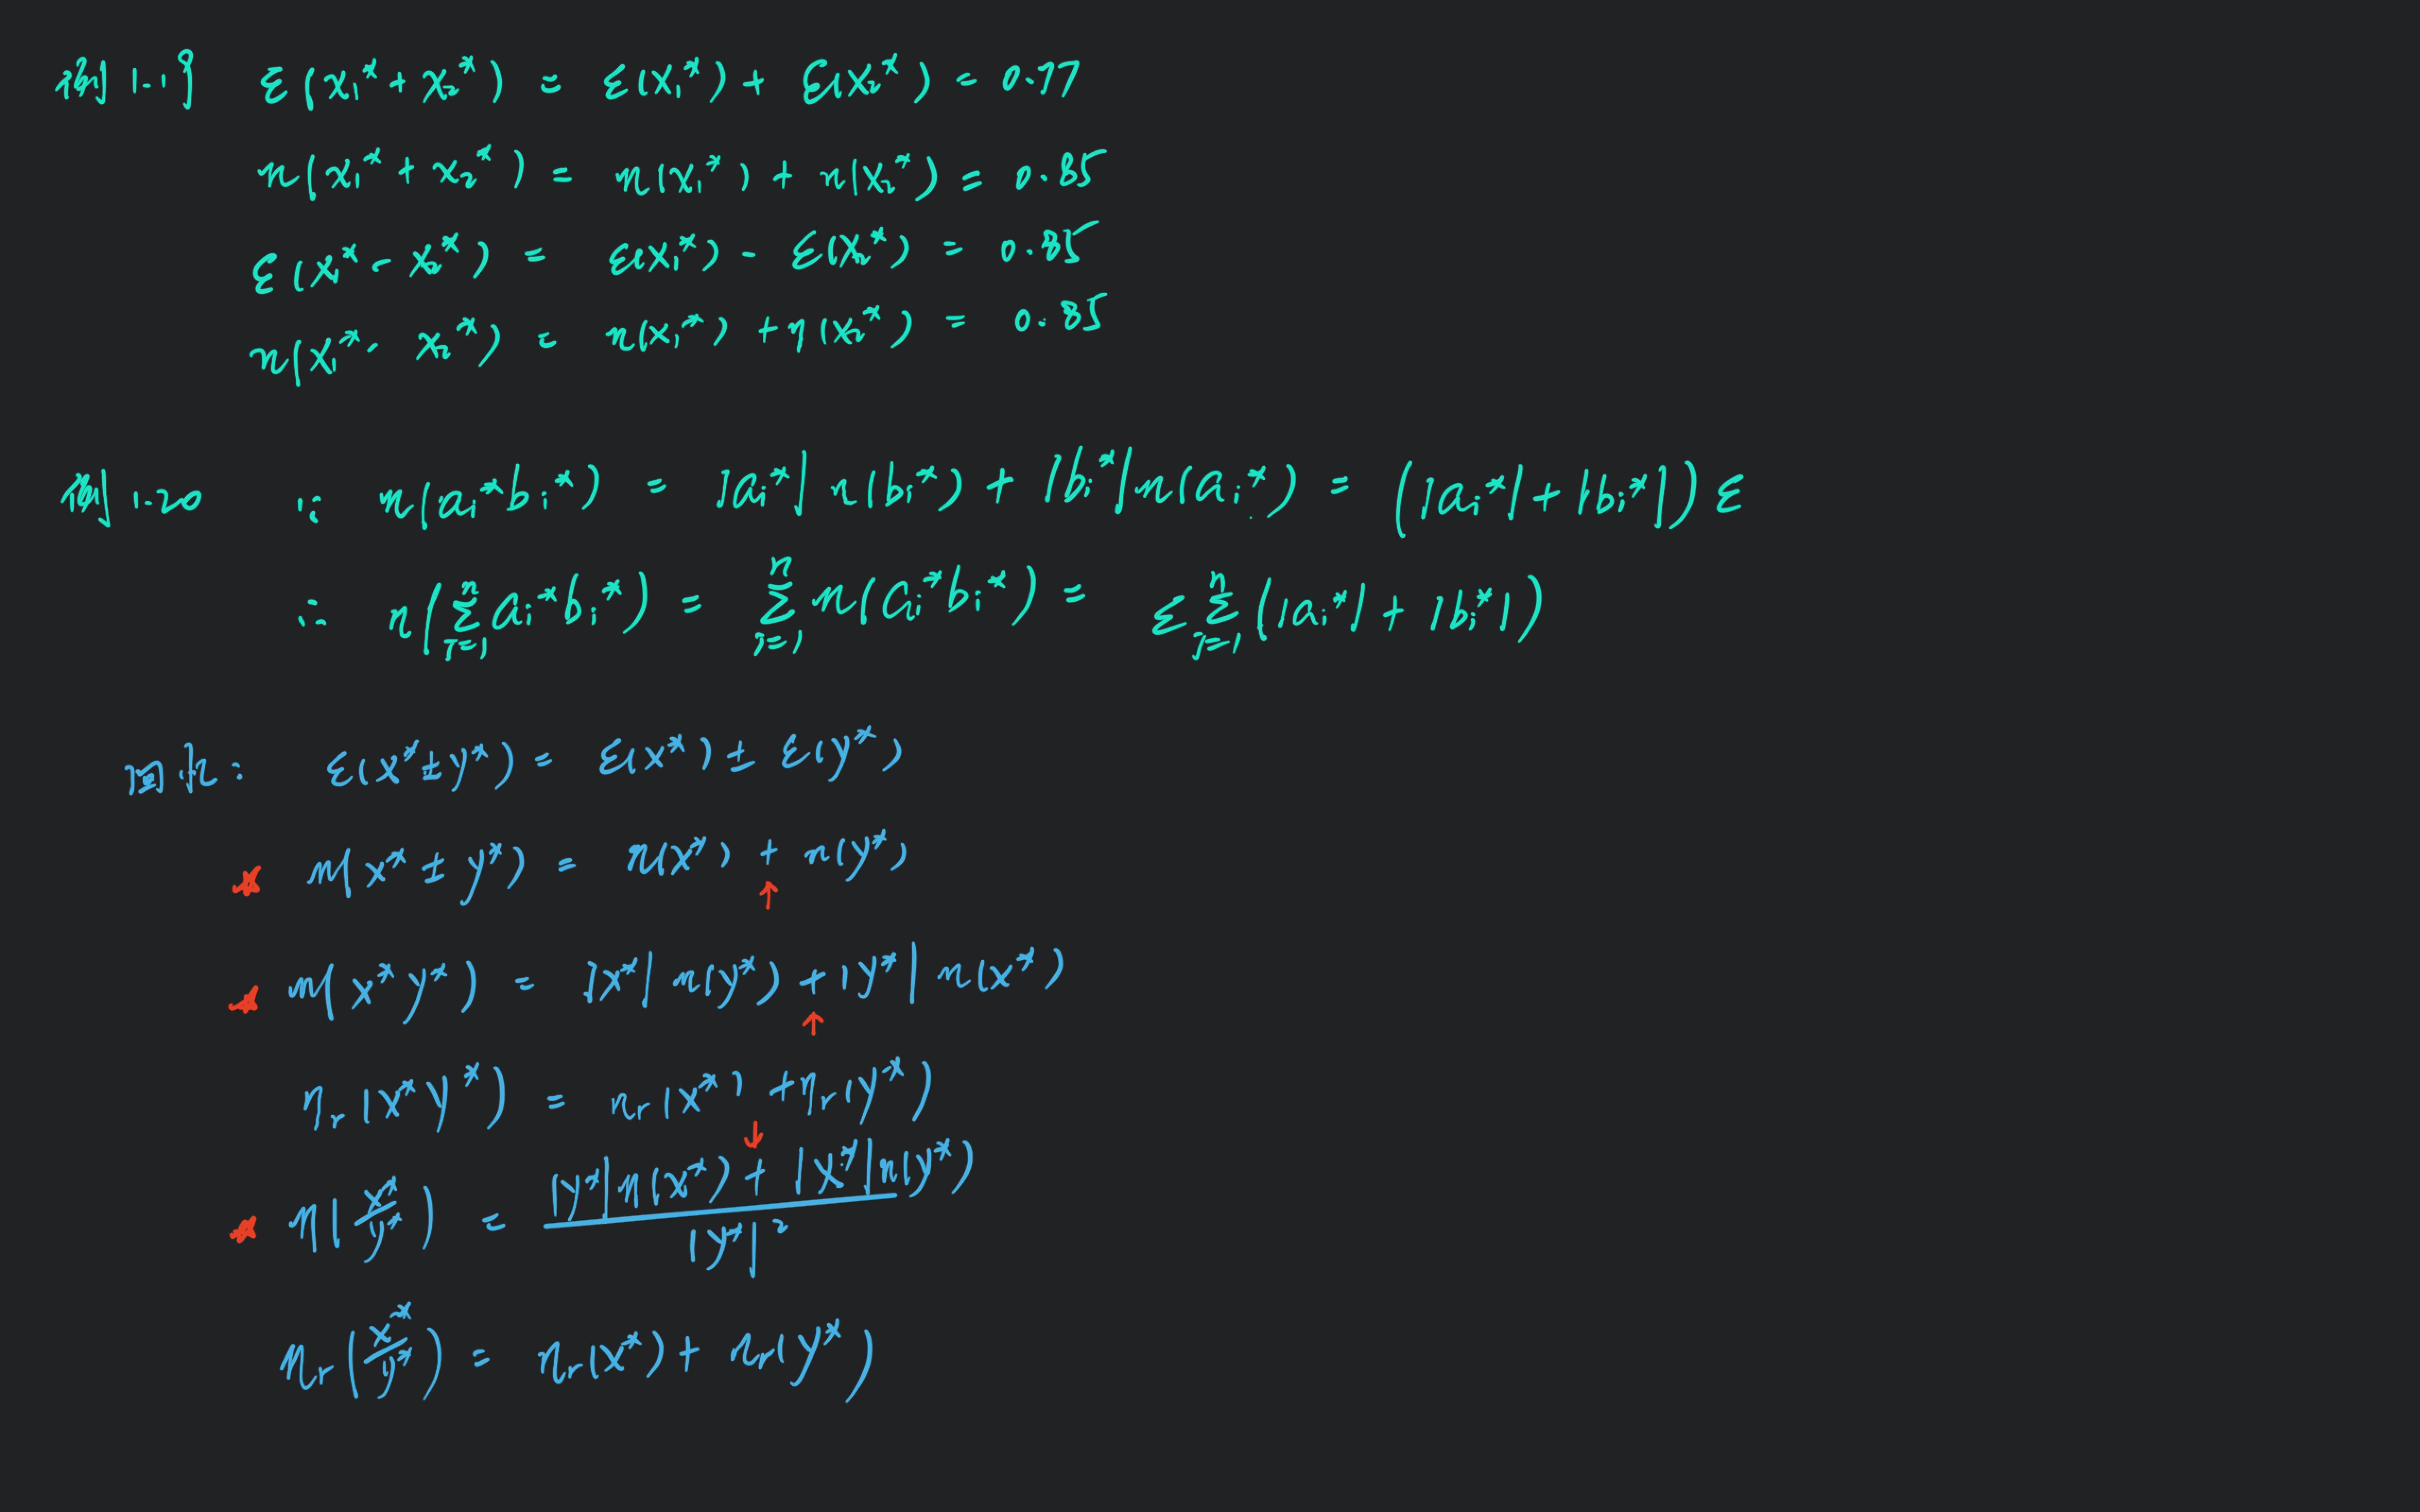 例1.19 ε(x₁* + x₂*) = ε(x₁*) + ε(x₂*) = 0.77
η(x₁* + x₂*) = η(x₁*) + η(x₂*) = 0.85
ε(x₁* - x₂*) = ε(x₁*) - ε(x₂*) = 0.85
η(x₁* - x₂*) = η(x₁*) + η(x₂*) = 0.85
例1.20 ∵ η(aᵢ*bᵢ*) = |aᵢ*| η(bᵢ*) + |bᵢ*| η(aᵢ*) = (|aᵢ*| + |bᵢ*|) ε
∴ η(∑ᵢ₌₁ⁿ aᵢ*bᵢ*) = ∑ᵢ₌₁ⁿ η(aᵢ*bᵢ*) = ε ∑ᵢ₌₁ⁿ (|aᵢ*| + |bᵢ*|)
ε(x* ± y*) = ε(x*) ± ε(y*)
★ η(x* ± y*) = η(x*) + η(y*)
↑
★ η(x*y*) = |x*| η(y*) + |y*| η(x*)
↑
ηr(x*y*) = ηr(x*) + ηr(y*)
↓
★ η(x*/y*) = (|y*| η(x*) + |x*| η(y*)) / |y*|²
ηr(x*/y*) = ηr(x*) + ηr(y*)